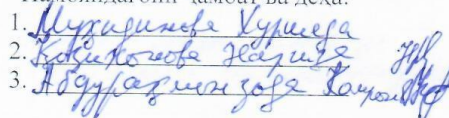 Намояндагони ҷамоат ва деҳа:
1. Мухидинова Хуршеда
2. Қозихонова Нариза
3. Абдураҳмонзода